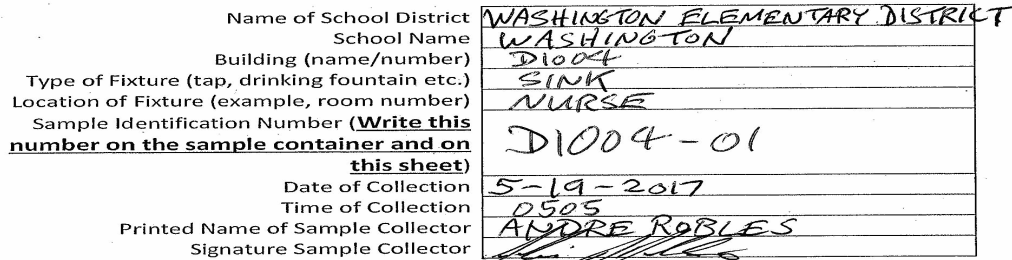 Name of School District WASHINGTON ELEMENTARY DISTRICT
School Name WASHINGTON
Building (name/number) D1004
Type of Fixture (tap, drinking fountain etc.) SINK
Location of Fixture (example, room number) NURSE
Sample Identification Number (Write this
number on the sample container and on D1004-01
this sheet)
Date of Collection 5-19-2017
Time of Collection 0505
Printed Name of Sample Collector ANDRE ROBLES
Signature Sample Collector